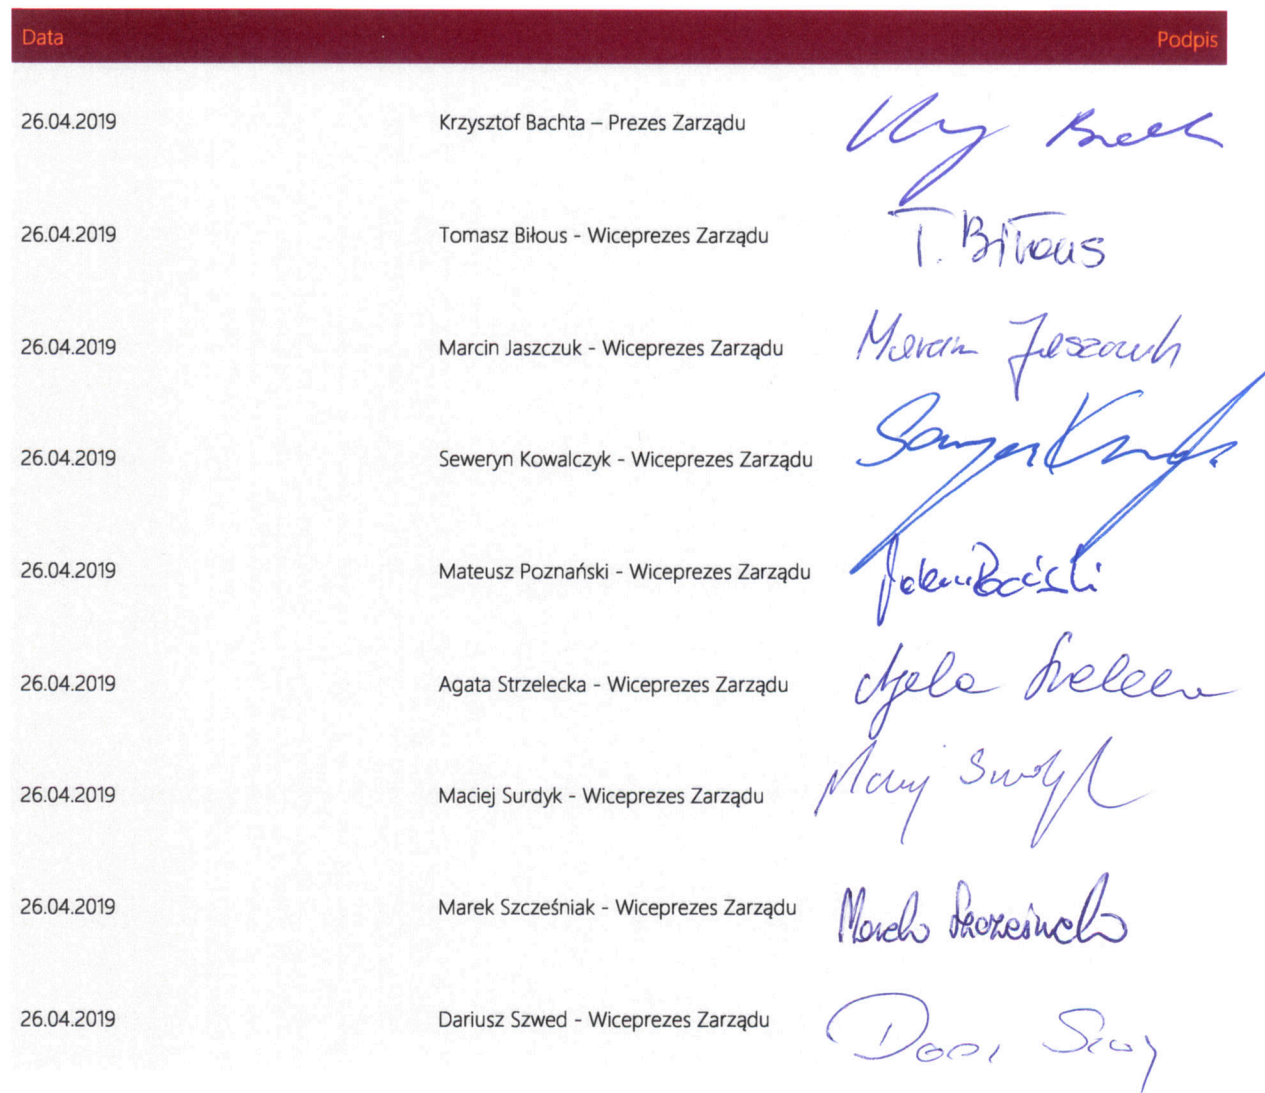 Data Podpis
26.04.2019 Krzysztof Bachta – Prezes Zarządu
26.04.2019 Tomasz Biłous - Wiceprezes Zarządu T. Biłous
26.04.2019 Marcin Jaszczuk - Wiceprezes Zarządu Marcin Jaszczuk
26.04.2019 Seweryn Kowalczyk - Wiceprezes Zarządu
26.04.2019 Mateusz Poznański - Wiceprezes Zarządu
26.04.2019 Agata Strzelecka - Wiceprezes Zarządu
26.04.2019 Maciej Surdyk - Wiceprezes Zarządu
26.04.2019 Marek Szcześniak - Wiceprezes Zarządu Marek Szcześniak
26.04.2019 Dariusz Szwed - Wiceprezes Zarządu